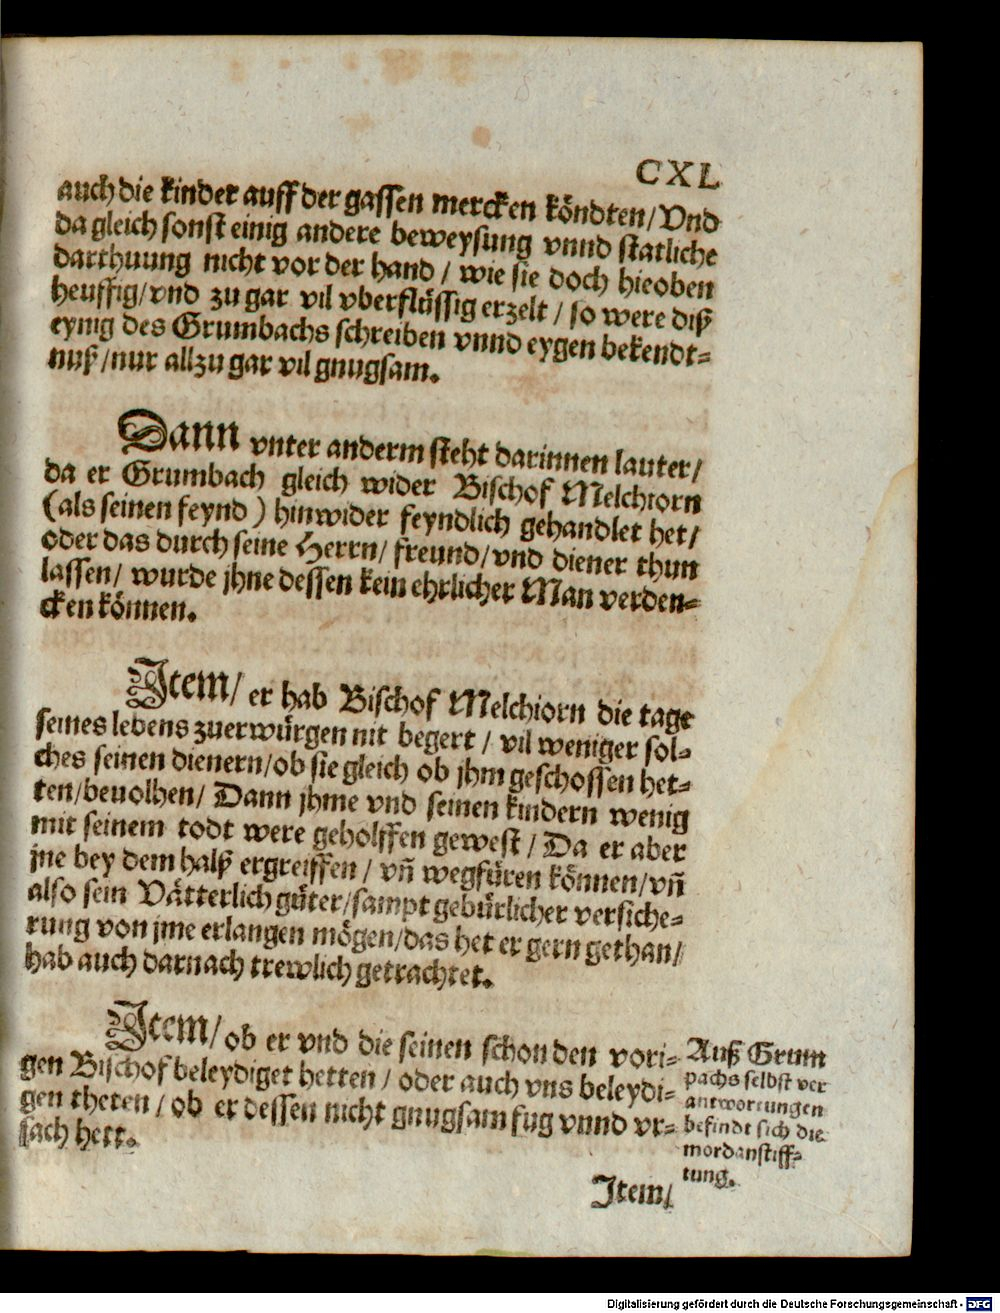 CXL
auch die kinder auff der gassen mercken köndten/ Vnd
da gleich sonst einig andere beweysung vnnd statliche
darthuung nicht vor der hand / wie sie doch hieoben
heuffig/ vnd zu gar vil vberflüssig erzelt / so were diß
eynig des Grumbachs schreiben vnnd eygen bekendt-
nuß / nur allzu gar vil gnugsam.
Dann vnter anderm steht darinnen lauter/
da er Grumbach gleich wider Bischof Melchiorn
(als seinen feynd) hinwider feyndlich gehandlet het/
oder das durch seine Herrn/ freund/ vnd diener thun
lassen/ wurde jhne dessen kein ehrlicher Man verden-
cken können.
Item/ er hab Bischof Melchiorn die tage
seines lebens zuerwürgen nit begert / vil weniger sol-
ches seinen dienern/ ob sie gleich ob jhm geschossen het-
ten/ beuolhen/ Dann jhme vnd seinen kindern wenig
mit seinem todt were geholffen gewest / Da er aber
jne bey dem halß ergreiffen / vñ wegfüren können/ vñ
also sein Vätterlich güter/ sampt gebürlicher versiche-
rung von jme erlangen mögen/ das het er gern gethan/
hab auch darnach trewlich getrachtet.
Item/ ob er vnd die seinen schon den vori-
gen Bischof beleydiget hetten / oder auch vns beleydi-
gen theten / ob er dessen nicht gnugsam fug vnnd vr-
sach hett.
Auß Grum
pachs selbst ver
antwortungen
befindt sich die
mordanstiff-
tung.
Item/
Digitalisierung gefördert durch die Deutsche Forschungsgemeinschaft - DFG